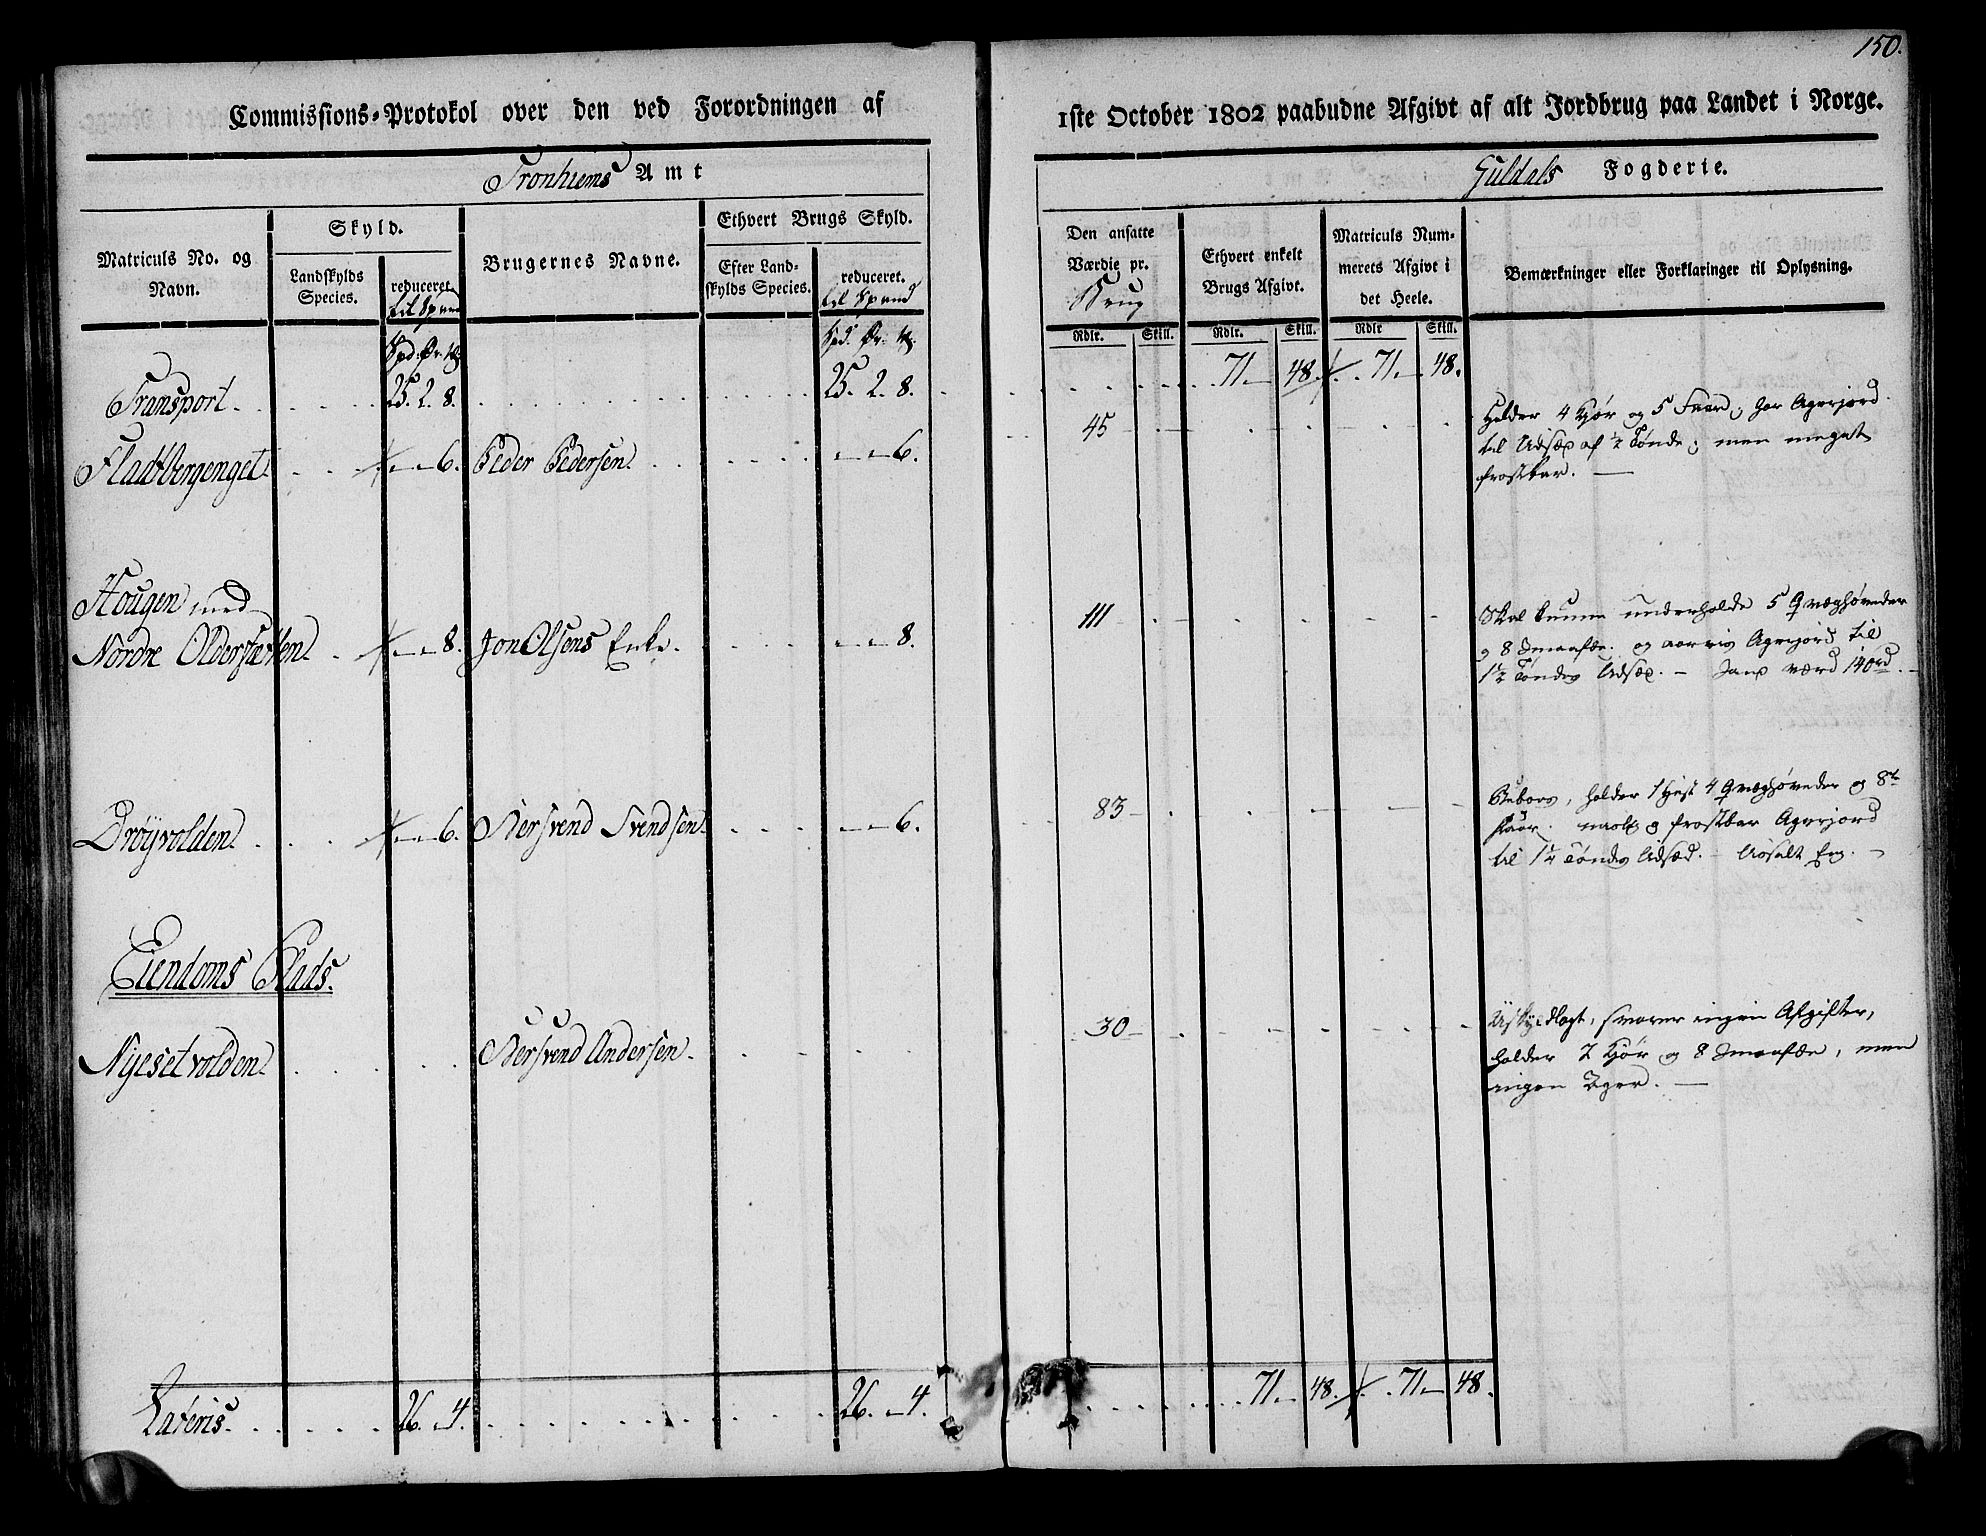 150.
Commissions-Protokol over den ved Forordningen af
1ste October 1802 paabudne Afgivt af alt Jordbrug paa Landet i Norge.
Tronhiems Amt
Guldals Fogderie.
Matriculs No. og
Navn.
Skyld.
Landskylds
Species.
reduceret
til Spand
Brugernes Navne.
Ethvert Brugs Skyld.
Efter Land-
skylds Species.
reduceret.
til Spand
Den ansatte
Værdie pr.
Brug
Ethvert enkelt
Brugs Afgivt.
Matriculs Num-
merets Afgivt i
det Heele.
Bemærkninger eller Forklaringer til Oplysning.
Rdlr. Skill. Rdlr. Skill. Rdlr Skill.
Spd. Ør. Spd. Ør.
Transport. 25. 2. 8. 25. 2. 8. 71. 48. 71. 48.
Fladtbergenget. 6. Peder Pedersen. 6. 45
Holder 4 Kjør og 5 Faar, har Agerjord
til Udsæd af 1/2 Tønde; men meget
frostbar.
Hougen med
Nordre Oldersætten. 8. Jon Olsens Enke. 8. 111
Skal kunne underholde 5 Qvæghøveder
og 8 Smaafæ. og aarvis Agerjord til
1 1/2 Tønde Udsæd. - Sans værd 140rd.
Drøyvolden. 6. Stersvend Svendsen. 6. 83
holder 1 Hest 4 Qvæghøveder og 8te
Faar. og frostbar Agerjord
til 1 1/4 Tønde Udsæd. - Eng.
Eiendoms Plads.
Nyesetvolden. Stersvend Andersen. 30
Uskyldlagt, svarer ingen Afgifter,
holder 2 Kjør og 8 Smaafæ, men
ingen Ager.
Lateris. 26. 4. 26. 4. 71. 48. 71. 48.